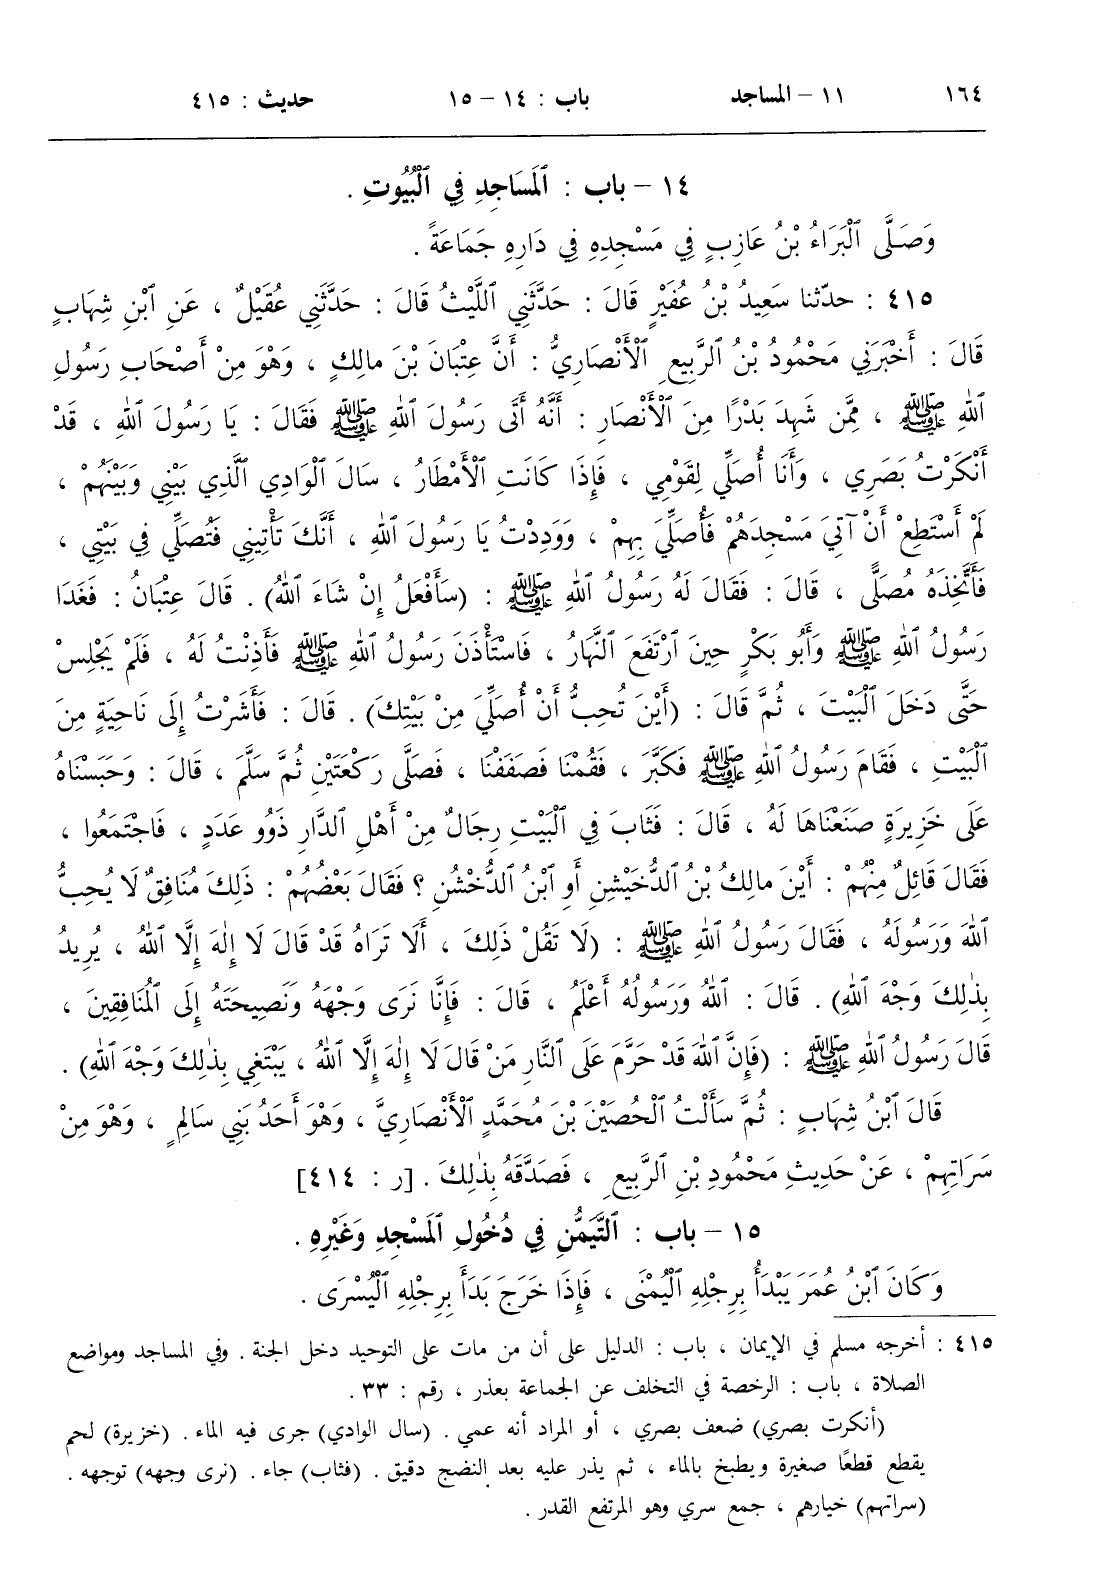 ١٦٤ ١١ – المساجد باب : ١٤ – ١٥ حديث : ٤١٥
١٤ – باب : ٱلْمَسَاجِدِ فِي ٱلْبُيُوتِ .
وَصَلَّى ٱلْبَرَاءُ بْنُ عَازِبٍ فِي مَسْجِدِهِ فِي دَارِهِ جَمَاعَةً .
٤١٥ : حدّثنا سَعِيدُ بْنُ عُفَيْرٍ قَالَ : حَدَّثَنِي اللَّيْثُ قَالَ : حَدَّثَنِي عُقَيْلٌ ، عَنِ ٱبْنِ شِهَابٍ
قَالَ : أَخْبَرَنِي مَحْمُودُ بْنُ ٱلرَّبِيعِ ٱلْأَنْصَارِيُّ : أَنَّ عِتْبَانَ بْنَ مالِكٍ ، وَهْوَ مِنْ أَصْحَابِ رَسُولِ
ٱللهِ ﷺ ، مِمَّن شَهِدَ بَدْرًا مِنَ ٱلْأَنْصَارِ : أَنَّهُ أَتَى رَسُولَ ٱللهِ ﷺ فَقَالَ : يَا رَسُولَ ٱللهِ ، قَدْ
أَنْكَرْتُ بَصَرِي ، وَأَنَا أُصَلِّي لِقَوْمِي ، فَإِذَا كَانَتِ ٱلْأَمْطَارُ ، سَالَ ٱلْوَادِي ٱلَّذِي بَيْنِي وَبَيْنَهُمْ ،
لَمْ أَسْتَطِعْ أَنْ آتِيَ مَسْجِدَهُمْ فَأُصَلِّيَ بِهِمْ ، وَوَدِدْتُ يَا رَسُولَ ٱللهِ ، أَنَّكَ تَأْتِينِي فَتُصَلِّي فِي بَيْتِي ،
فَأَتَّخِذَهُ مُصَلًّى ، قَالَ : فَقَالَ لَهُ رَسُولُ ٱللهِ ﷺ : (سَأَفْعَلُ إِنْ شَاءَ ٱللهُ) . قَالَ عِتْبَانُ : فَغَدَا
رَسُولُ ٱللهِ ﷺ وَأَبُو بَكْرٍ حِينَ ٱرْتَفَعَ ٱلنَّهَارُ ، فَاسْتَأْذَنَ رَسُولُ ٱللهِ ﷺ فَأَذِنْتُ لَهُ ، فَلَمْ يَجْلِسْ
حَتَّى دَخَلَ ٱلْبَيْتَ ، ثُمَّ قَالَ : (أَيْنَ تُحِبُّ أَنْ أُصَلِّيَ مِنْ بَيْتِكَ) . قَالَ : فَأَشَرْتُ إِلَى نَاحِيَةٍ مِنَ
ٱلْبَيْتِ ، فَقَامَ رَسُولُ ٱللهِ ﷺ فَكَبَّرَ ، فَقُمْنَا فَصَفَفْنَا ، فَصَلَّى رَكْعَتَيْنِ ثُمَّ سَلَّمَ ، قَالَ : وَحَبَسْنَاهُ
عَلَى خَزِيرَةٍ صَنَعْنَاهَا لَهُ ، قَالَ : فَثَابَ فِي ٱلْبَيْتِ رِجَالٌ مِنْ أَهْلِ ٱلدَّارِ ذَوُو عَدَدٍ ، فَاجْتَمَعُوا ،
فَقَالَ قَائِلٌ مِنْهُمْ : أَيْنَ مالِكُ بْنُ ٱلدُّخَيْشِنِ أَوِ ٱبْنُ ٱلدُّخْشُنِ ؟ فَقَالَ بَعْضُهُمْ : ذَلِكَ مُنَافِقٌ لَا يُحِبُّ
ٱللهَ وَرَسُولَهُ ، فَقَالَ رَسُولُ ٱللهِ ﷺ : (لَا تَقُلْ ذَلِكَ ، أَلَا تَرَاهُ قَدْ قَالَ لَا إِلٰهَ إِلَّا ٱللهُ ، يُرِيدُ
بِذٰلِكَ وَجْهَ ٱللهِ) . قَالَ : ٱللهُ وَرَسُولُهُ أَعْلَمُ ، قَالَ : فَإِنَّا نَرَى وَجْهَهُ وَنَصِيحَتَهُ إِلَى ٱلْمُنَافِقِينَ ،
قَالَ رَسُولُ ٱللهِ ﷺ : (فَإِنَّ ٱللهَ قَدْ حَرَّمَ عَلَى ٱلنَّارِ مَنْ قَالَ لَا إِلٰهَ إِلَّا ٱللهُ ، يَبْتَغِي بِذٰلِكَ وَجْهَ ٱللهِ) .
قَالَ ٱبْنُ شِهَابٍ : ثُمَّ سَأَلْتُ ٱلْحُصَيْنَ بْنَ مُحَمَّدٍ ٱلْأَنْصَارِيَّ ، وَهْوَ أَحَدُ بَنِي سَالِمٍ ، وَهْوَ مِنْ
سَرَاتِهِمْ ، عَنْ حَدِيثِ مَحْمُودِ بْنِ ٱلرَّبِيعِ ، فَصَدَّقَهُ بِذٰلِكَ . [ر : ٤١٤]
١٥ – باب : ٱلتَّيَمُّنِ فِي دُخُولِ ٱلْمَسْجِدِ وَغَيْرِهِ .
وَكَانَ ٱبْنُ عُمَرَ يَبْدَأُ بِرِجْلِهِ ٱلْيُمْنَى ، فَإِذَا خَرَجَ بَدَأَ بِرِجْلِهِ ٱلْيُسْرَى .
٤١٥ : أخرجه مسلم في الإيمان ، باب : الدليل على أن من مات على التوحيد دخل الجنة . وفي المساجد ومواضع
الصلاة ، باب : الرخصة في التخلف عن الجماعة بعذر ، رقم : ٣٣ .
(أنكرت بصري) ضعف بصري ، أو المراد أنه عمي . (سال الوادي) جرى فيه الماء . (خزيرة) لحم
يقطع قطعًا صغيرة ويطبخ بالماء ، ثم يذر عليه بعد النضج دقيق . (فثاب) جاء . (نرى وجهه) توجهه .
(سراتهم) خيارهم ، جمع سري وهو المرتفع القدر .